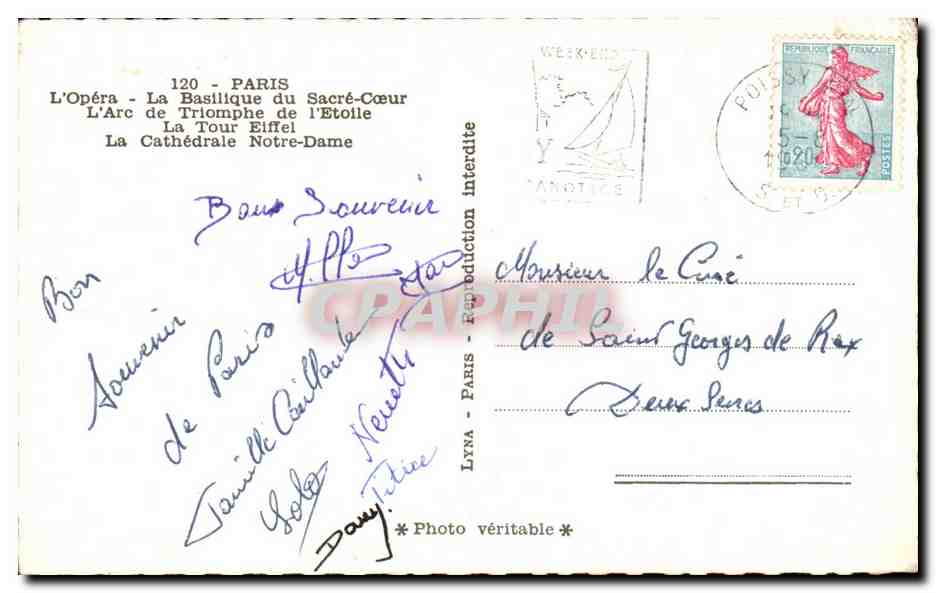 120 - PARIS
L'Opéra - La Basilique du Sacré-Cœur
L'Arc de Triomphe de l'Etoile
La Tour Eiffel
La Cathédrale Notre-Dame
WEEK-END
Y
CANOTAGE
POISSY
S. ET O.
REPUBLIQUE FRANÇAISE
0,20
POSTES
Bons Souvenir
Bon
Souvenir
de Paris
Famille Caillaute
Lolo
Nenette
Titice
Dany
LYNA - PARIS - Reproduction interdite
CPAPHIL
Monsieur le Curé
de Saint Georges de Rex
Deux Sevres
* Photo véritable *